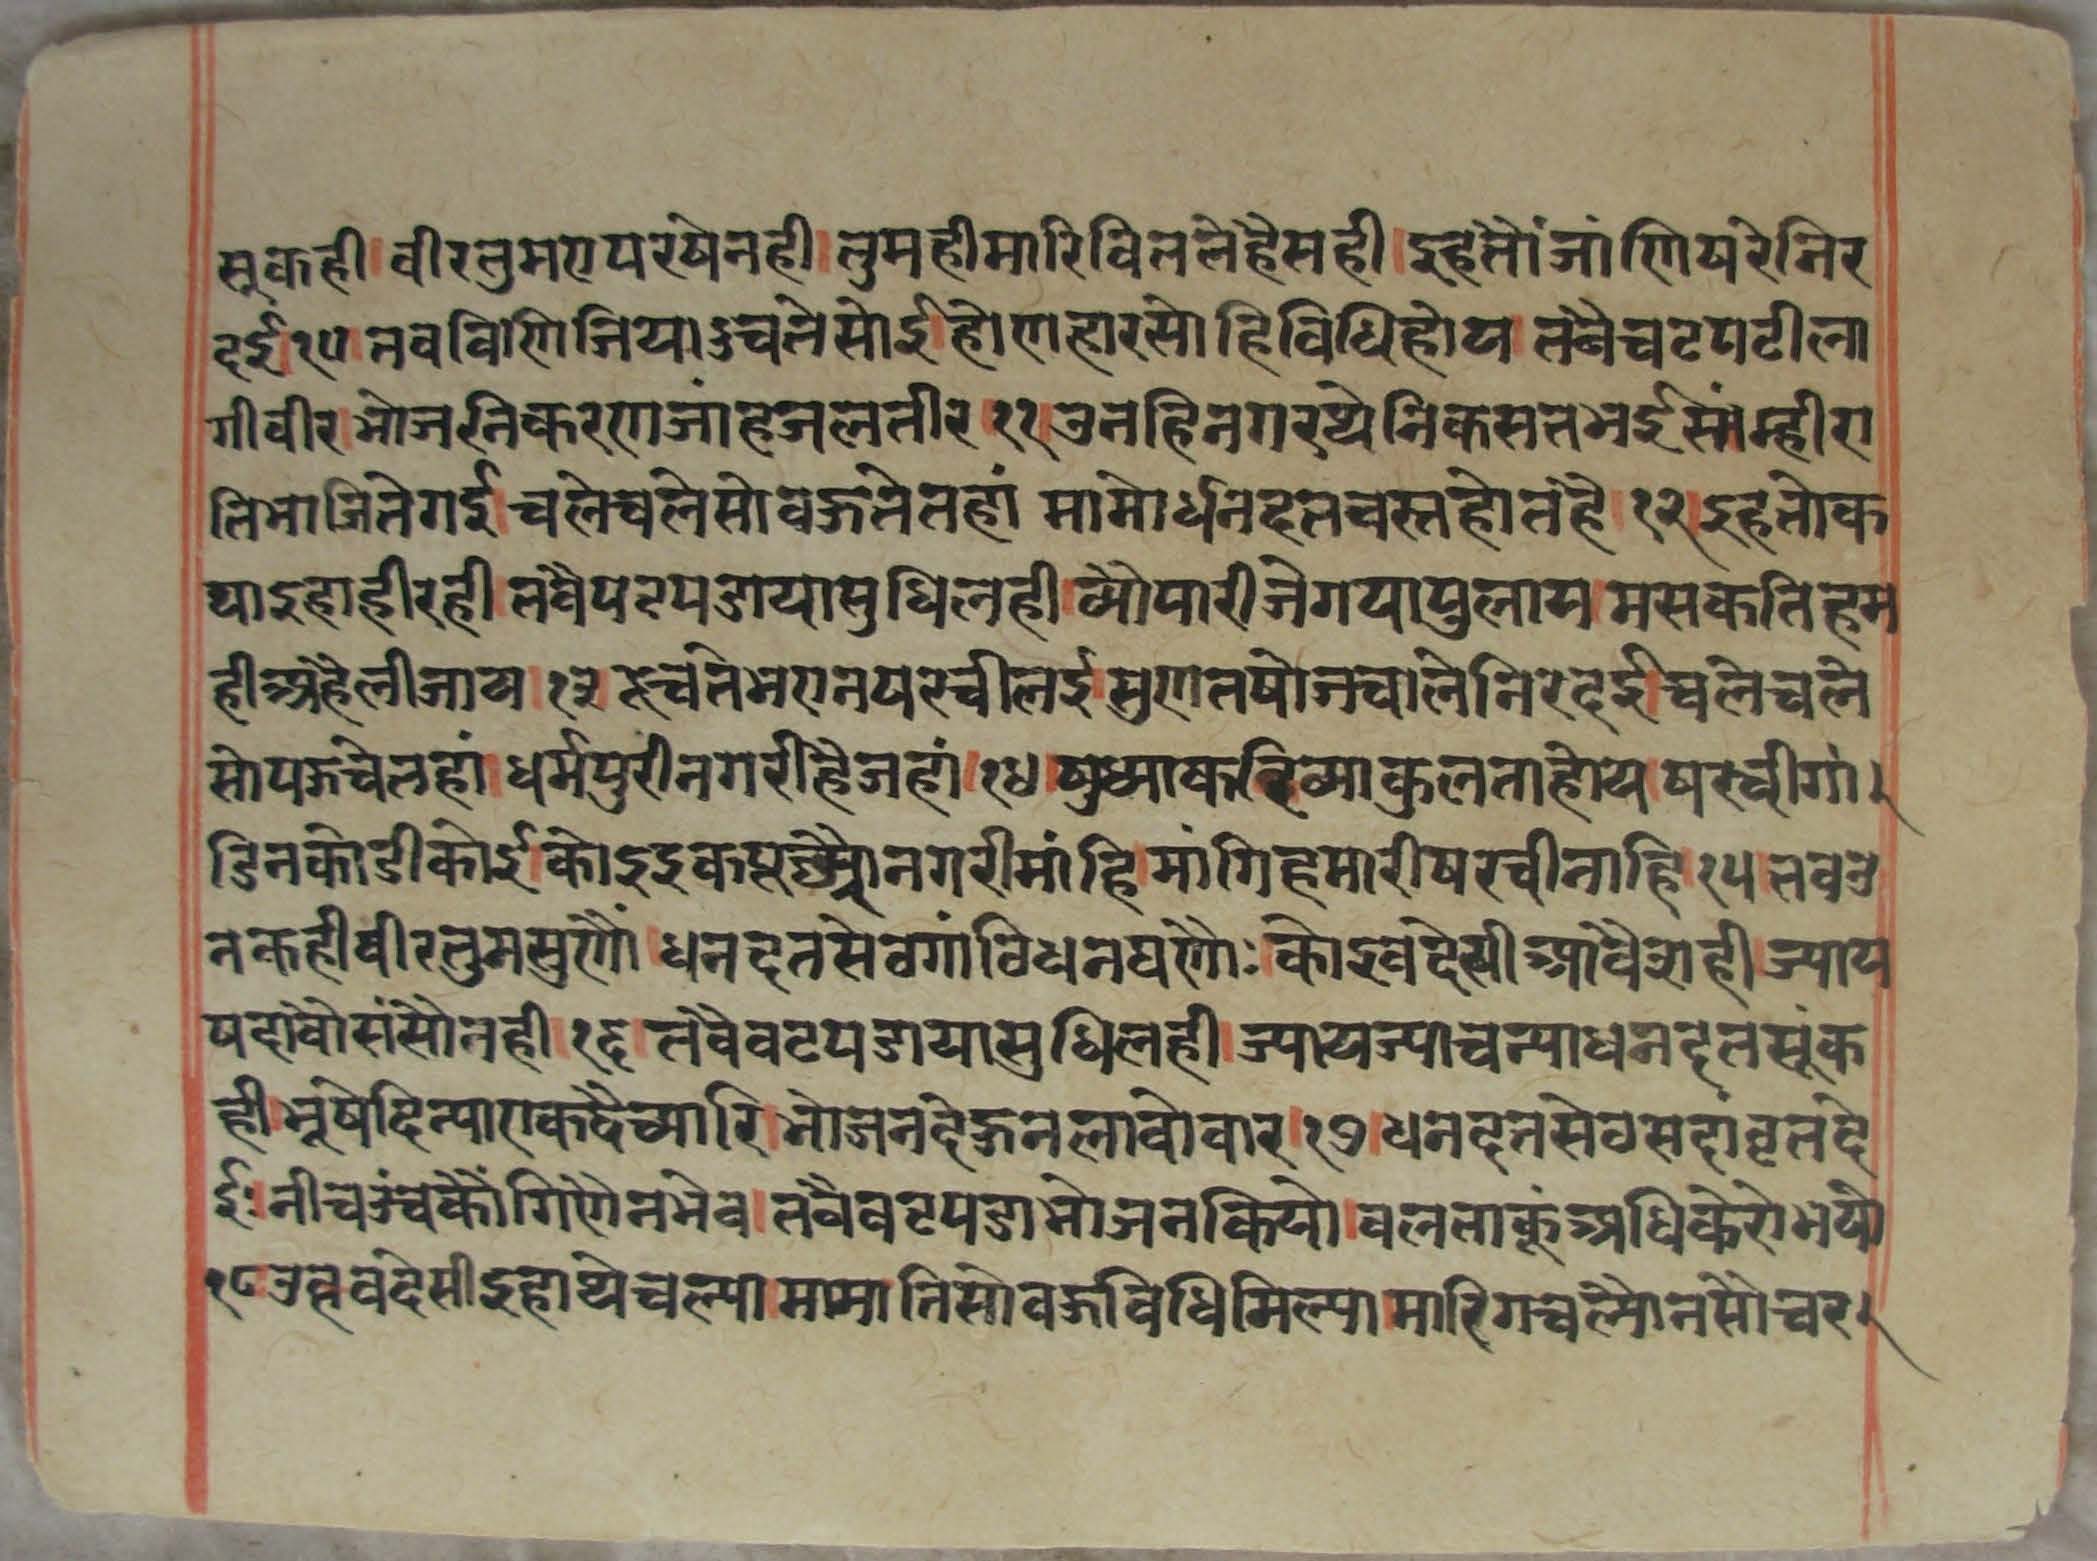 सूकही। वीरतुमएपरषेनही। तुमहीमारिवितलेहैसही। इहतौंजांणियरेनिर
दई।१०।तबविणिजियाउचलेसोई।होणहारसोहिविधिहोय।तंबैचटपटीला
गीवीर।भोजननिकरणजांहजलतीर।११।उनहिनगरथेनिकसतभईसांम्हीरा
तिभाजितेगई।चलेचलेसोवऊतेतहां।मामोर्धनदतवस्तहोतहै।१२।इहतोक
थाइहाहीरही।तंबैपटपडायासुधिलही।व्यौपारीजेगयापुलाय।मसकतिहम
हीअहैलीजाय।१३।रुचतेभएनषरचीलई।सुणतषोजचालेनिरदई।चलेचले
सोपऊचेतहां।धर्मपुरीनगरीहैजहां।१४।षुध्याकरिव्याकुलताहोय।षरचीगां।
डिनकोडीकोई।कोइइक नगरीमांहि।मांगिहमारीषरचीनाहि।१५।तबउ
नकहीवीरतुमसुणौं।धनदतसेठगांठिधनघणौः।कोइवेदेसीआवैराही।ज्याय
षहांवौसंसौनही।१६।तंबैवटपडायासुधिलही।ज्यायज्याचन्याधनदतसूंक
ही।भूषेदिन्याराकदैच्यारि।भोजनदेऊनलावोवार।१७।धनदतसेठसदांवृतदे
ईः।नीचऊंचकौंगिणैनभेव।तंबैवटपडाभोजनकियो।बलताकूंअधिकेरोभयो
१८।उत्नवदेसीइहाथेचल्या।मामातिसोवऊविधिमिल्या।मारिगचल्यौनसौचर।